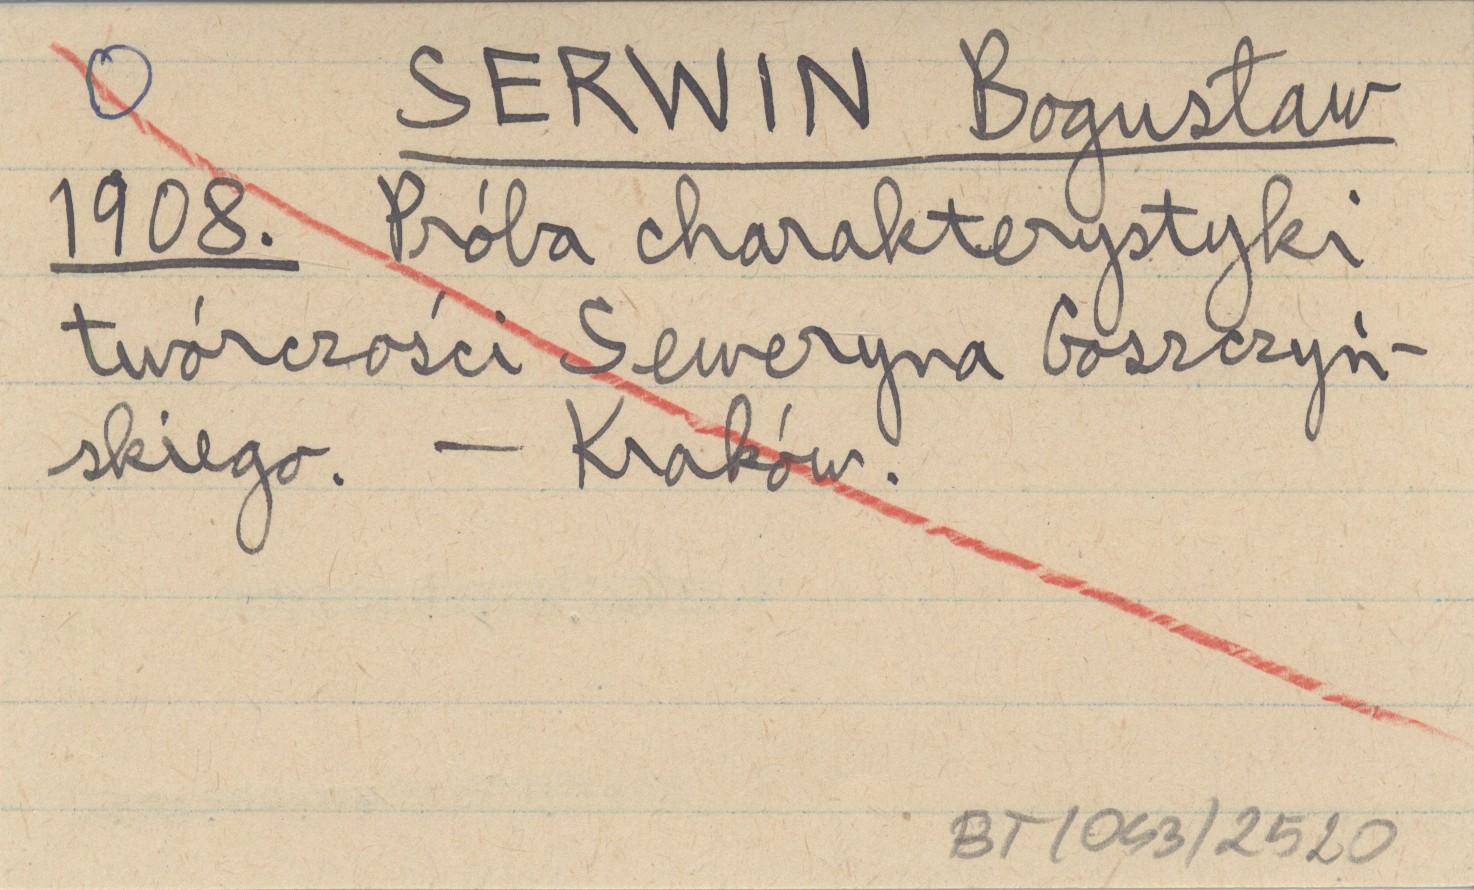 SERWIN Bogusław
1908. Próba charakterystyki
twórczości Seweryna Goszczyń-
skiego. — Kraków.
BT/063/2520